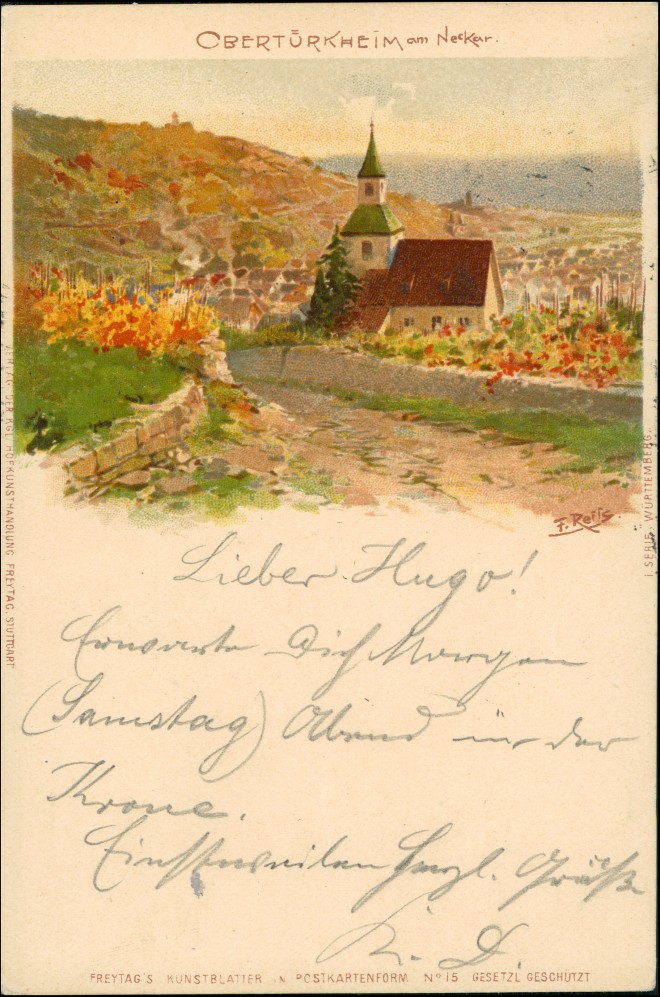 OBERTÜRKHEIM am Neckar.
F. Reiss
VERLAG DER KGL. HOFKUNSTHANDLUNG FREYTAG, STUTTGART
I. SERIE WÜRTTEMBERG.
Lieber Hugo!
Erwarte Dich Morgen
(Samstag) Abend in der
Krone.
Einstweilen Herzl. Grüße
K. D.
FREYTAG'S KUNSTBLÄTTER IN POSTKARTENFORM No 15 GESETZL GESCHÜTZT